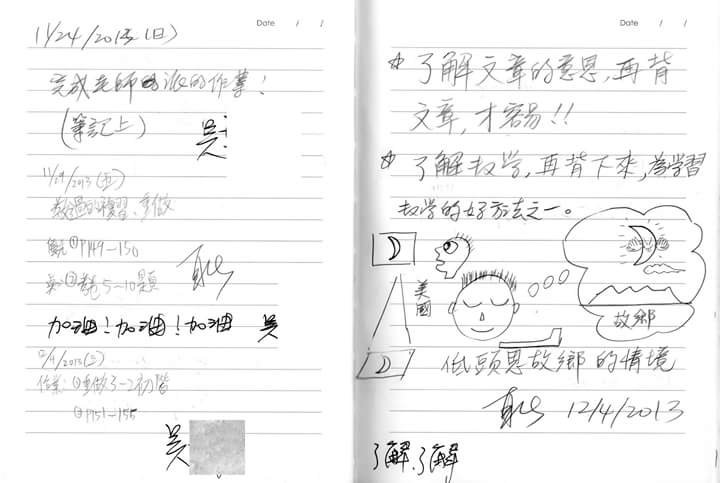 Date / /
11/24/2013(日)
完成老師派的作業!
(筆記上)
吳
11/29/2013(五)
教過的複習、重做
①P149-150
② 5~10題
加油!加油!加油 吳
12/4/2013(三)
作業: ①重做3-2初階
②P151-155
吳
Date / /
☆ 了解文章的意思,再背
文章,才容易!!
☆ 了解数学,再背下來,為學習
数学的好方法之一。
美國
故鄉
低頭思故鄉的情境
12/4/2013
了解、了解